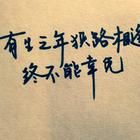 有生之年狭路相逢
终不能幸免